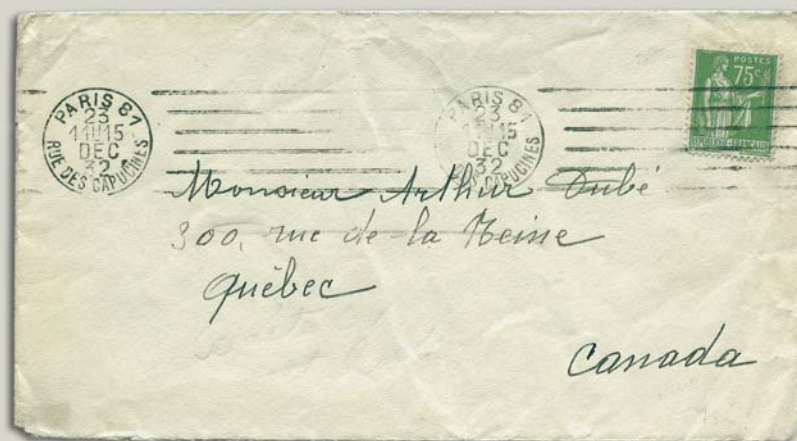 PARIS 81
23
11H15
DEC
32
RUE DES CAPUCINES
PARIS 81
23
11H15
DEC
32
RUE DES CAPUCINES
POSTES
75c
REPUBLIQUE FRANÇAISE
Monsieur Arthur Dubé
300, rue de la Reine
Québec
Canada